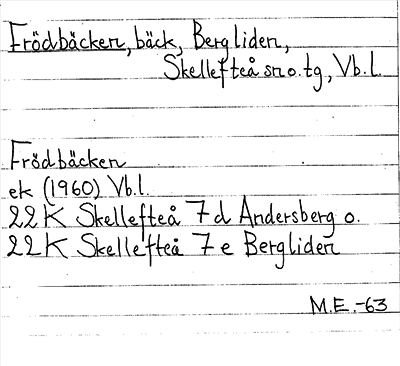 Frödbäcken, bäck, Bergliden,
Skellefteå sn o. tg, Vb.l.
Frödbäcken
ek (1960) Vb.l.
22 K Skellefteå 7 d Andersberg o.
22 K Skellefteå 7 e Bergliden
M.E.-63